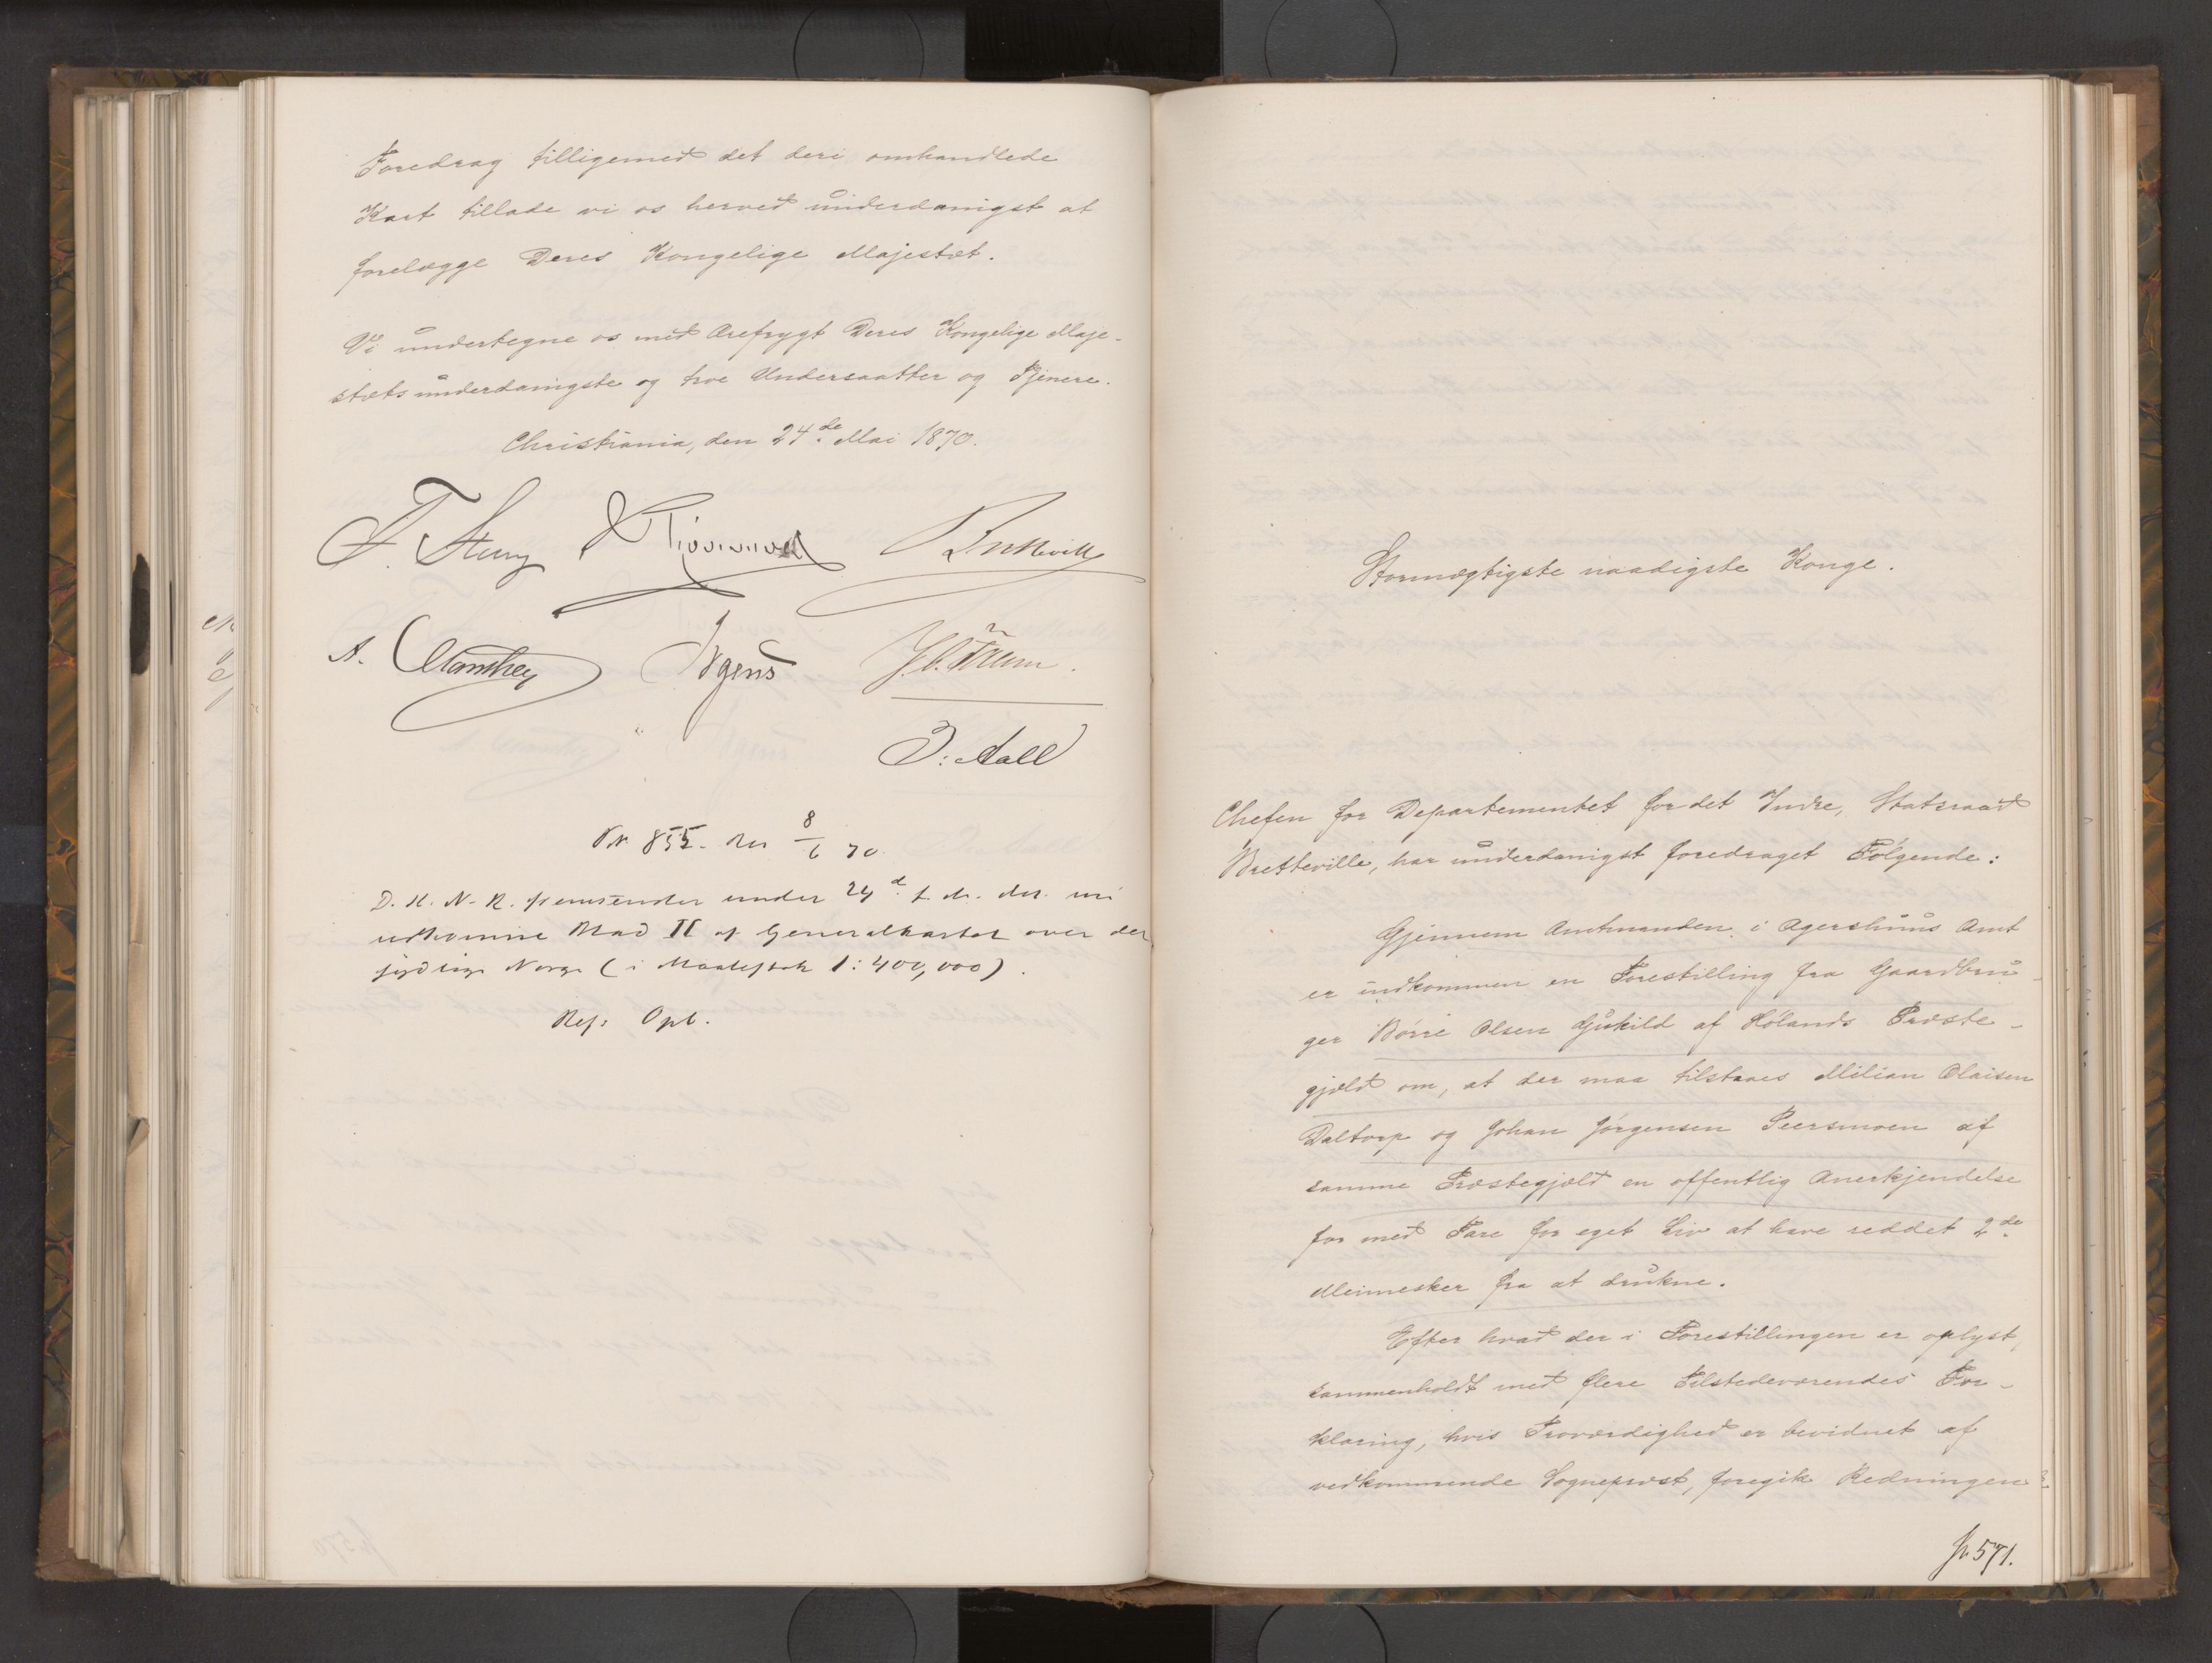 Foredrag tilligemed det deri omhandlede
Kart tillade vi os herved underdanigst at
forelægge Deres Kongelige Majestæt.
Vi undertegne os med Ærefrygt Deres Kongelige Maje-
stæts underdanigste og troe Undersaatter og Tjenere.
Christiania, den 24de Mai 1870.
F. Stang
Bretteville
A. Manthey Irgens
J. Aall
No 855. den 8/6 70
D. K. N. R. fremsender under 24d f. M. det nu
udkomne Blad II af Generalkartet over det
sydlige Norge (i Maalestok 1:400,000).
Ref: Opl.
Stormægtigste naadigste Konge.
Chefen for Departementet for det Indre, Statsraad
Bretteville, har underdanigst foredraget Følgende:
Gjennem Amtmanden i Agershuus Amt
er indkommen en Forestilling fra Gaardbru-
ger Börre Olsen Gukild af Hölands Præste-
gjæld om, at der maa tilstaaes Milian Olaisen
Daltorp og Johan Jörgensen Peersmoen af
samme Præstegjæld en offentlig Anerkjendelse
for med Fare for eget Liv at have reddet 2de
Mennesker fra at drukne.
Efter hvad der i Forestillingen er oplyst,
sammenholdt med flere Tilstedeværendes For-
klaring, hvis Troværdighed er bevidnet af
vedkommende Sognepræst, foregik Redningen
fr. 571.